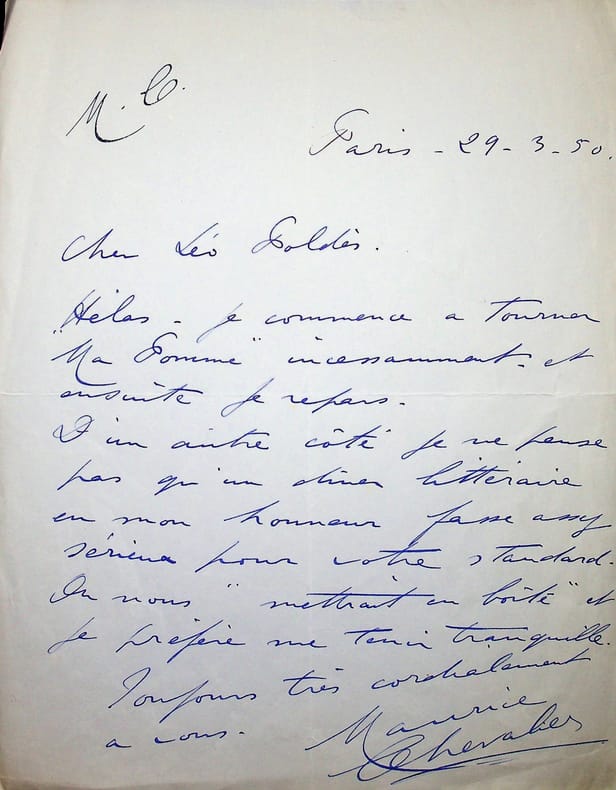 M. C.
Paris - 29 - 3 - 50.
Cher Léo Poldès.
Hélas - je commence a tourner
"Ma Pomme" incessamment - et
ensuite je repars.
D'un autre côté je ne pense
pas qu'un diner littéraire
en mon honneur fasse assez
sérieux pour votre standard.
On nous "mettrait en boîte" et
je préfère me tenir tranquille.
Toujours très cordialement
a vous.
Maurice
Chevalier